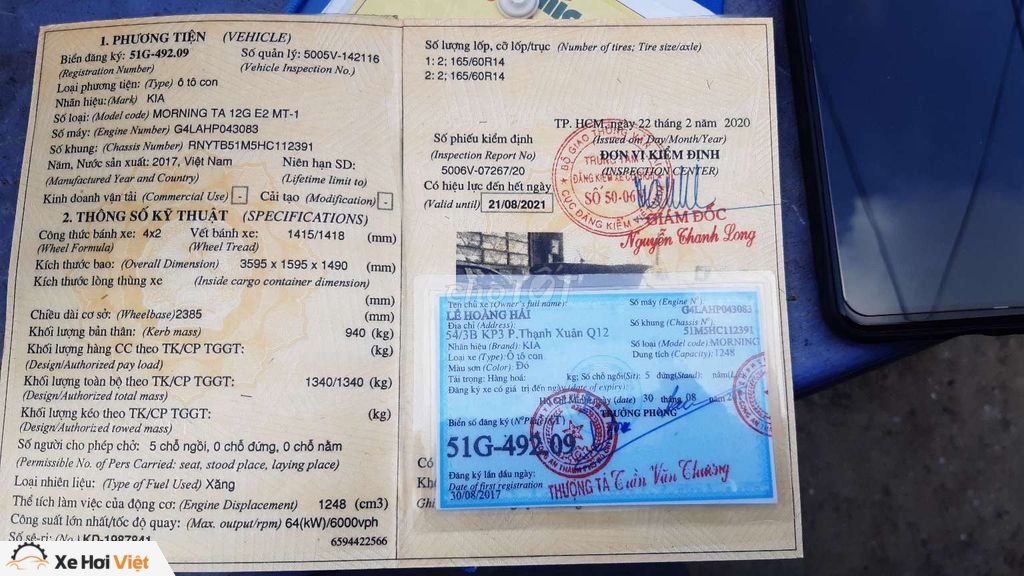 1. PHƯƠNG TIỆN (VEHICLE)
Biển đăng ký: 51G-492.09 Số quản lý: 5005V-142116
(Registration Number) (Vehicle Inspection No.)
Loại phương tiện: (Type) ô tô con
Nhãn hiệu: (Mark) KIA
Số loại: (Model code) MORNING TA 12G E2 MT-1
Số máy: (Engine Number) G4LAHP043083
Số khung: (Chassis Number) RNYTB51M5HC112391
Năm, Nước sản xuất: 2017, Việt Nam Niên hạn SD:
(Manufactured Year and Country) (Lifetime limit to)
Kinh doanh vận tải (Commercial Use) - Cải tạo (Modification) -
2. THÔNG SỐ KỸ THUẬT (SPECIFICATIONS)
Công thức bánh xe: 4x2 Vết bánh xe: 1415/1418 (mm)
(Wheel Formula) (Wheel Tread)
Kích thước bao: (Overall Dimension) 3595 x 1595 x 1490 (mm)
Kích thước lòng thùng xe (Inside cargo container dimension)
(mm)
Chiều dài cơ sở: (Wheelbase) 2385 (mm)
Khối lượng bản thân: (Kerb mass) 940 (kg)
Khối lượng hàng CC theo TK/CP TGGT: (kg)
(Design/Authorized pay load)
Khối lượng toàn bộ theo TK/CP TGGT: 1340/1340 (kg)
(Design/Authorized total mass)
Khối lượng kéo theo TK/CP TGGT: (kg)
(Design/Authorized towed mass)
Số người cho phép chở: 5 chỗ ngồi, 0 chỗ đứng, 0 chỗ nằm
(Permissible No. of Pers Carried: seat, stood place, laying place)
Loại nhiên liệu: (Type of Fuel Used) Xăng
Thể tích làm việc của động cơ: (Engine Displacement) 1248 (cm3)
Công suất lớn nhất/tốc độ quay: (Max. output/rpm) 64(kW)/6000vph
Số sê-ri: (No.) KD-1987841 6594422566
Số lượng lốp, cỡ lốp/trục (Number of tires; Tire size/axle)
1: 2; 165/60R14
2: 2; 165/60R14
TP. HCM, ngày 22 tháng 2 năm 2020
Số phiếu kiểm định (Issued on Day/Month/Year)
(Inspection Report No) ĐƠN VỊ KIỂM ĐỊNH
5006V-07267/20 (INSPECTION CENTER)
Có hiệu lực đến hết ngày
(Valid until) 21/08/2021
BỘ GIAO THÔNG
TRUNG TÂM
ĐĂNG KIỂM XE CƠ GIỚI
SỐ 50-06
CỤC ĐĂNG KIỂM
GIÁM ĐỐC
Nguyễn Thanh Long
Tên chủ xe (Owner's full name):
LÊ HOÀNG HẢI
Địa chỉ (Address):
54/3B KP3 P.Thạnh Xuân Q12
Nhãn hiệu (Brand): KIA
Loại xe (Type): Ô tô con
Màu sơn (Color): Đỏ
Tải trọng: Hàng hoá: kg; Số chỗ ngồi(Sit): 5 đứng(Stand): nằm
Đăng ký xe có giá trị đến ngày (date of expiry):
Số máy (Engine N°):
G4LAHP043083
Số khung (Chassis N°):
51M5HC112391
Số loại (Model code): MORNING
Dung tích (Capacity): 1248
Hồ Chí Minh, ngày (date) 30 tháng 08
TRƯỞNG PHÒNG
Biển số đăng ký
51G-492.09
Đăng ký lần đầu ngày:
Date of first registration
30/08/2017
THƯỢNG TÁ Trần Văn Thương
Có
Xe Hơi Việt